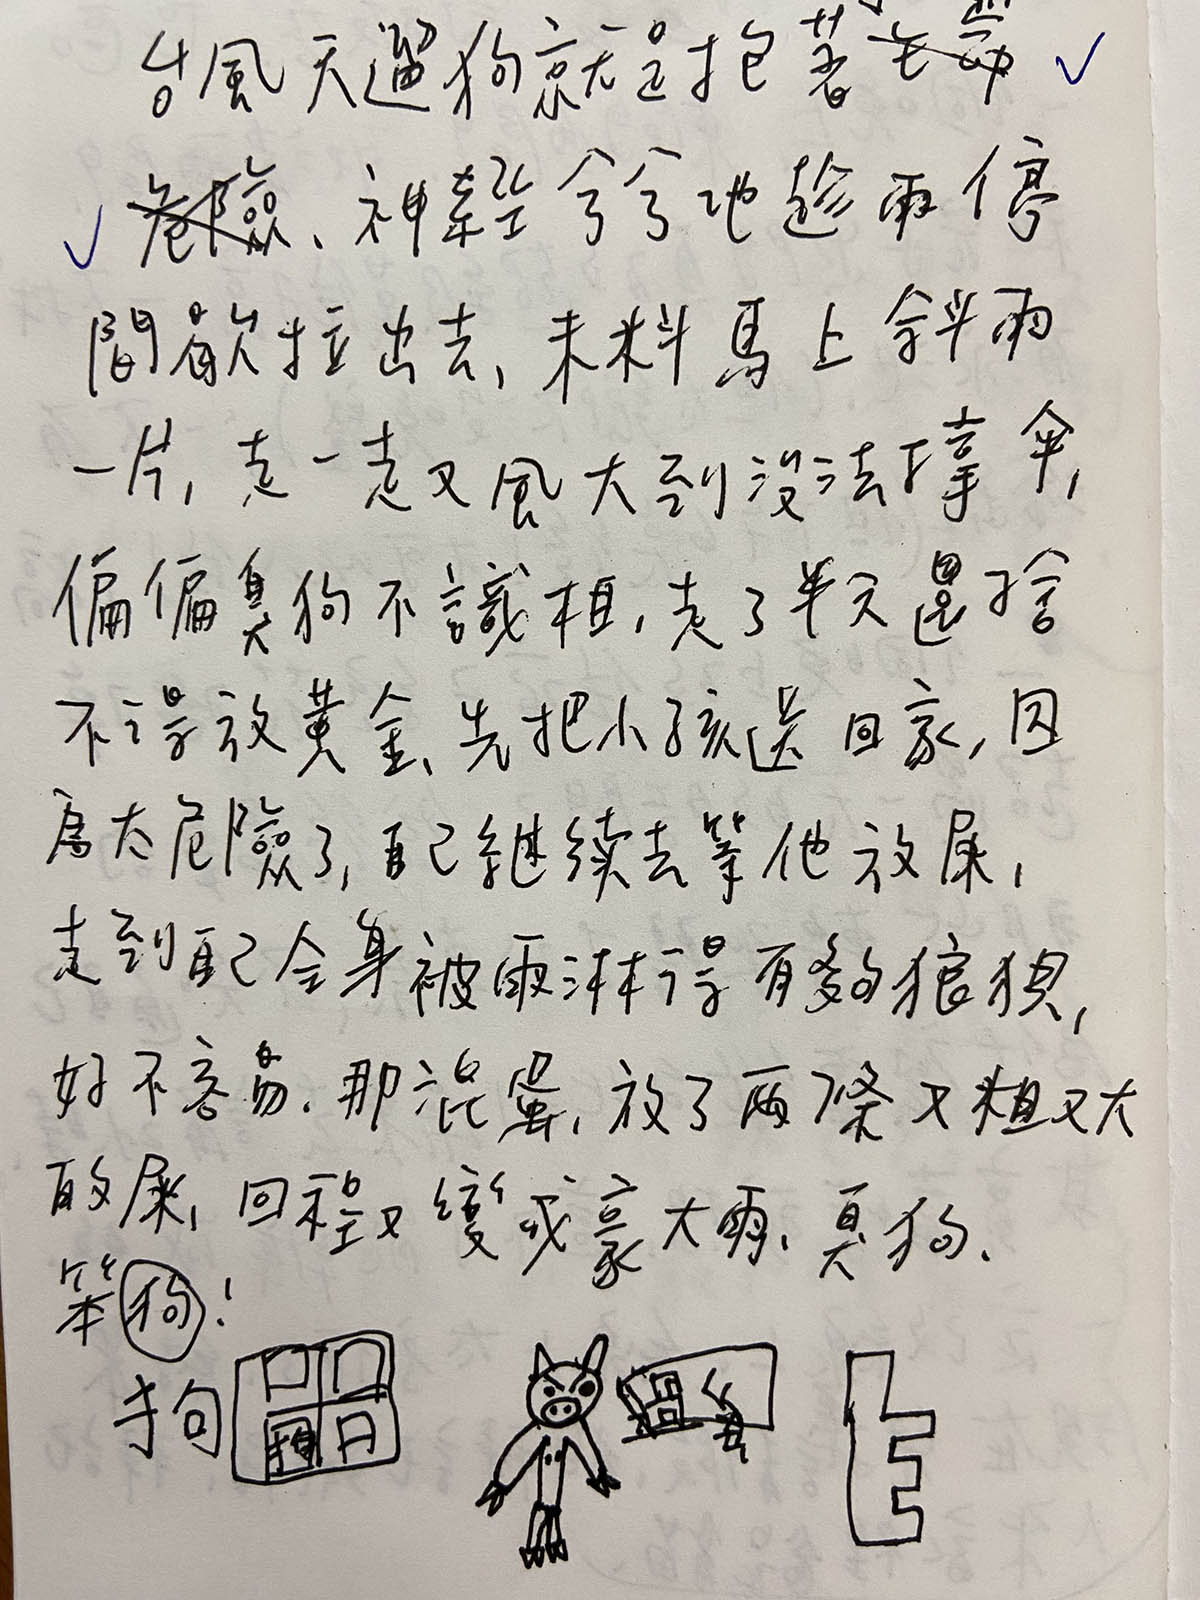 台風天遛狗就是抱著
危險、神經兮兮地趁雨停
間歇拉出去,未料馬上斜雨
一片,走一走又風大到沒法撐傘,
偏偏臭狗不識相,走了半天還捨
不得放黃金、先把小孩送回家,因
為太危險了,自己繼续去等他放屎,
走到自己全身被雨淋得有夠狼狽,
好不容易、那混蛋,放了兩條又粗又大
的屎,回程又變成豪大雨、臭狗、
笨狗!
狗